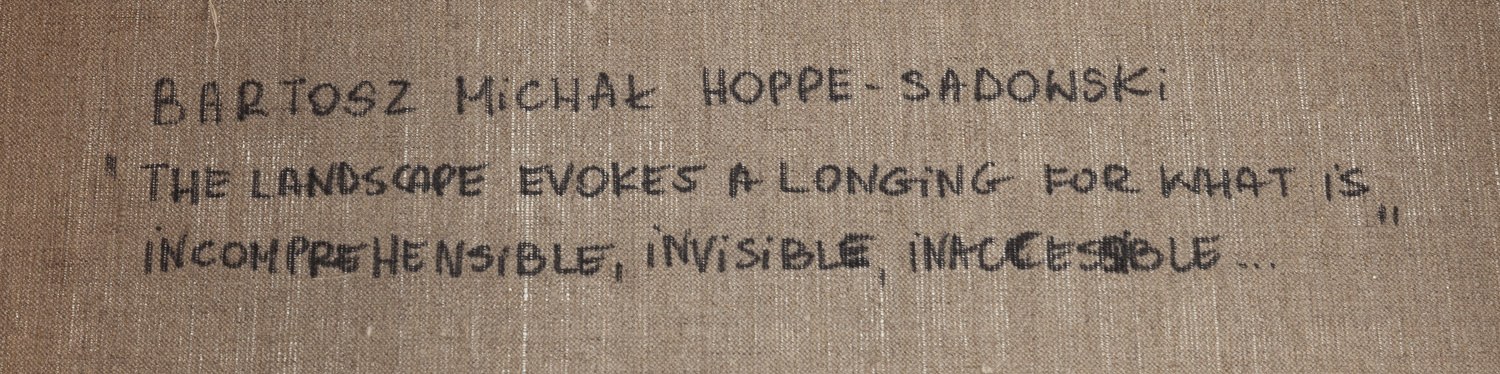 BARTOSZ MiCHAŁ HOPPE-SADOWSKi
"THE LANDSCAPE EVOKES A LONGiNG FOR WHAT iS
iNCOMPREHENSiBLE, iNViSiBLE, iNACCESSiBLE..."